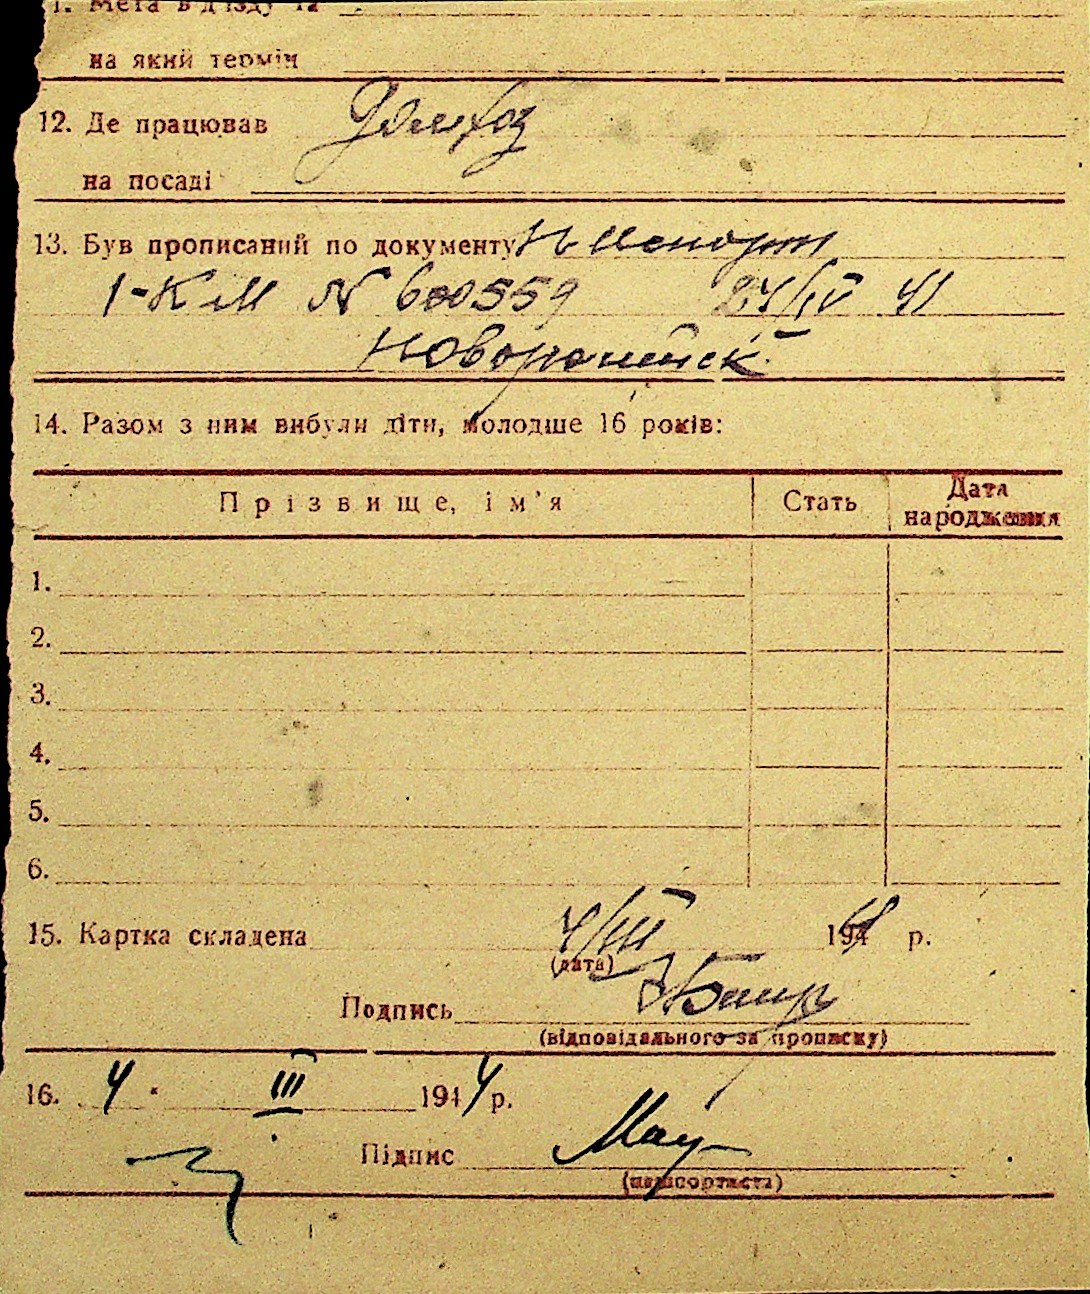 1. Мета в'їзду та
на який термін
12. Де працював Домхоз
на посаді
13. Був прописаний по документу паспорт
1-КМ № 600559 24/IV 41
Новоро
14. Разом з ним вибули діти, молодше 16 років:
Прізвище, ім'я Стать Дата народження
1.
2.
3.
4.
5.
6.
15. Картка складена 4/III 194 р.
(дата)
Подпись
(відповідального за прописку)
16. 4 III 1944 р.
Підпис
(пашпортиста)